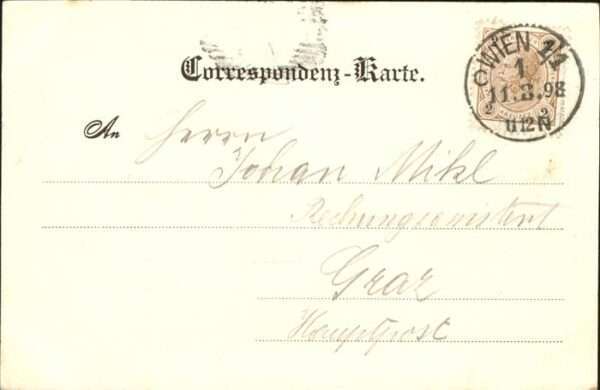 Correspondenz-Karte.
WIEN 1/1
1
11.3.98
2 2
11 12 N
An Herrn
Johan Mikl
Rechnungsassistent
Graz
Hauptpost